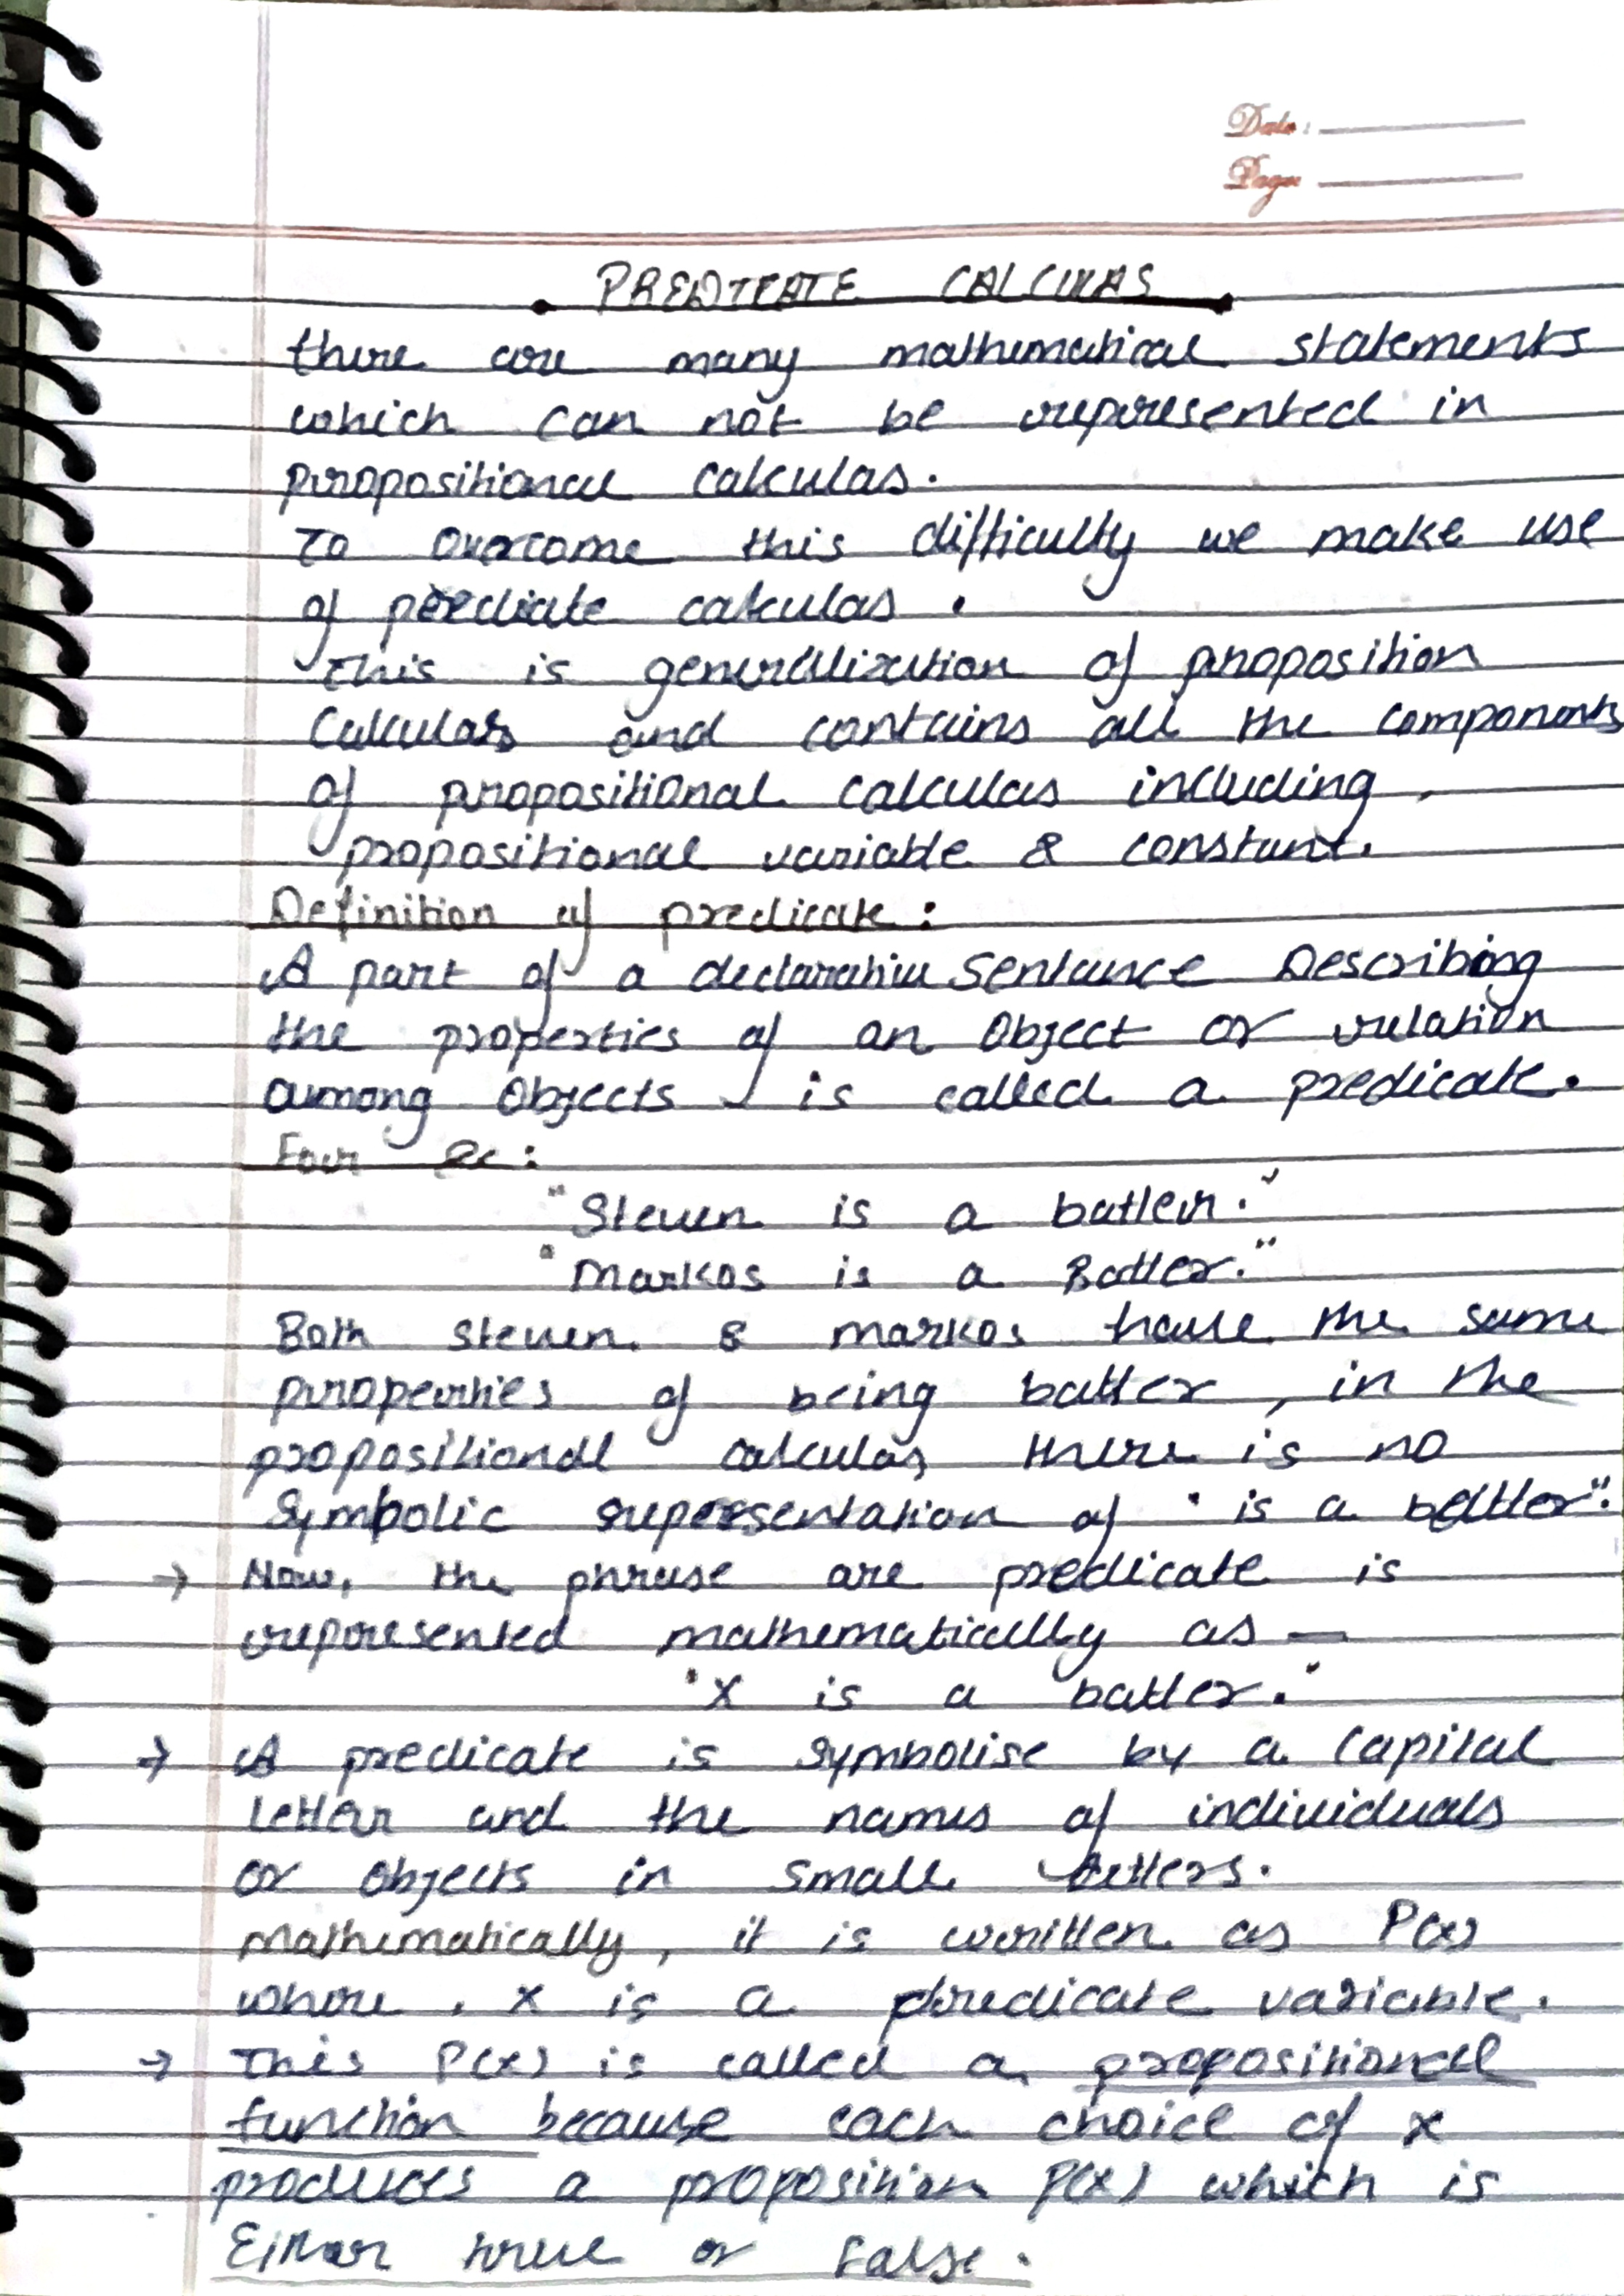 Date:
Page:
PREDICATE CALCULAS
there are many mathematical statements
which can not be represented in
propositional calculas.
To overcome this difficulty we make use
of prediate calculas.
This is generallization of proposition
Calculas and contains all the components
of propositional calculas including,
propositional variable & constant.
Definition of predicate:
A part of a declarative Sentance Describing
the properties of an Object or relation
among Objects is called a predicate.
For Ex:
"Steven is a batler."
"Markos is a Batler."
Both steven & markos have the same
properties of being batler, in the
propositional calculas there is no
Symbolic representation of "is a batler".
→ Now, the phrase are predicate is
represented mathematically as —
"X is a batler."
→ A predicate is symbolise by a Capital
letter and the names of individuals
or objects in small letters.
Mathematically, it is written as P(x)
where, x is a predicate variable.
→ This P(x) is called a propositional
function because each choice of x
produces a proposition P(x) which is
Either true or false.